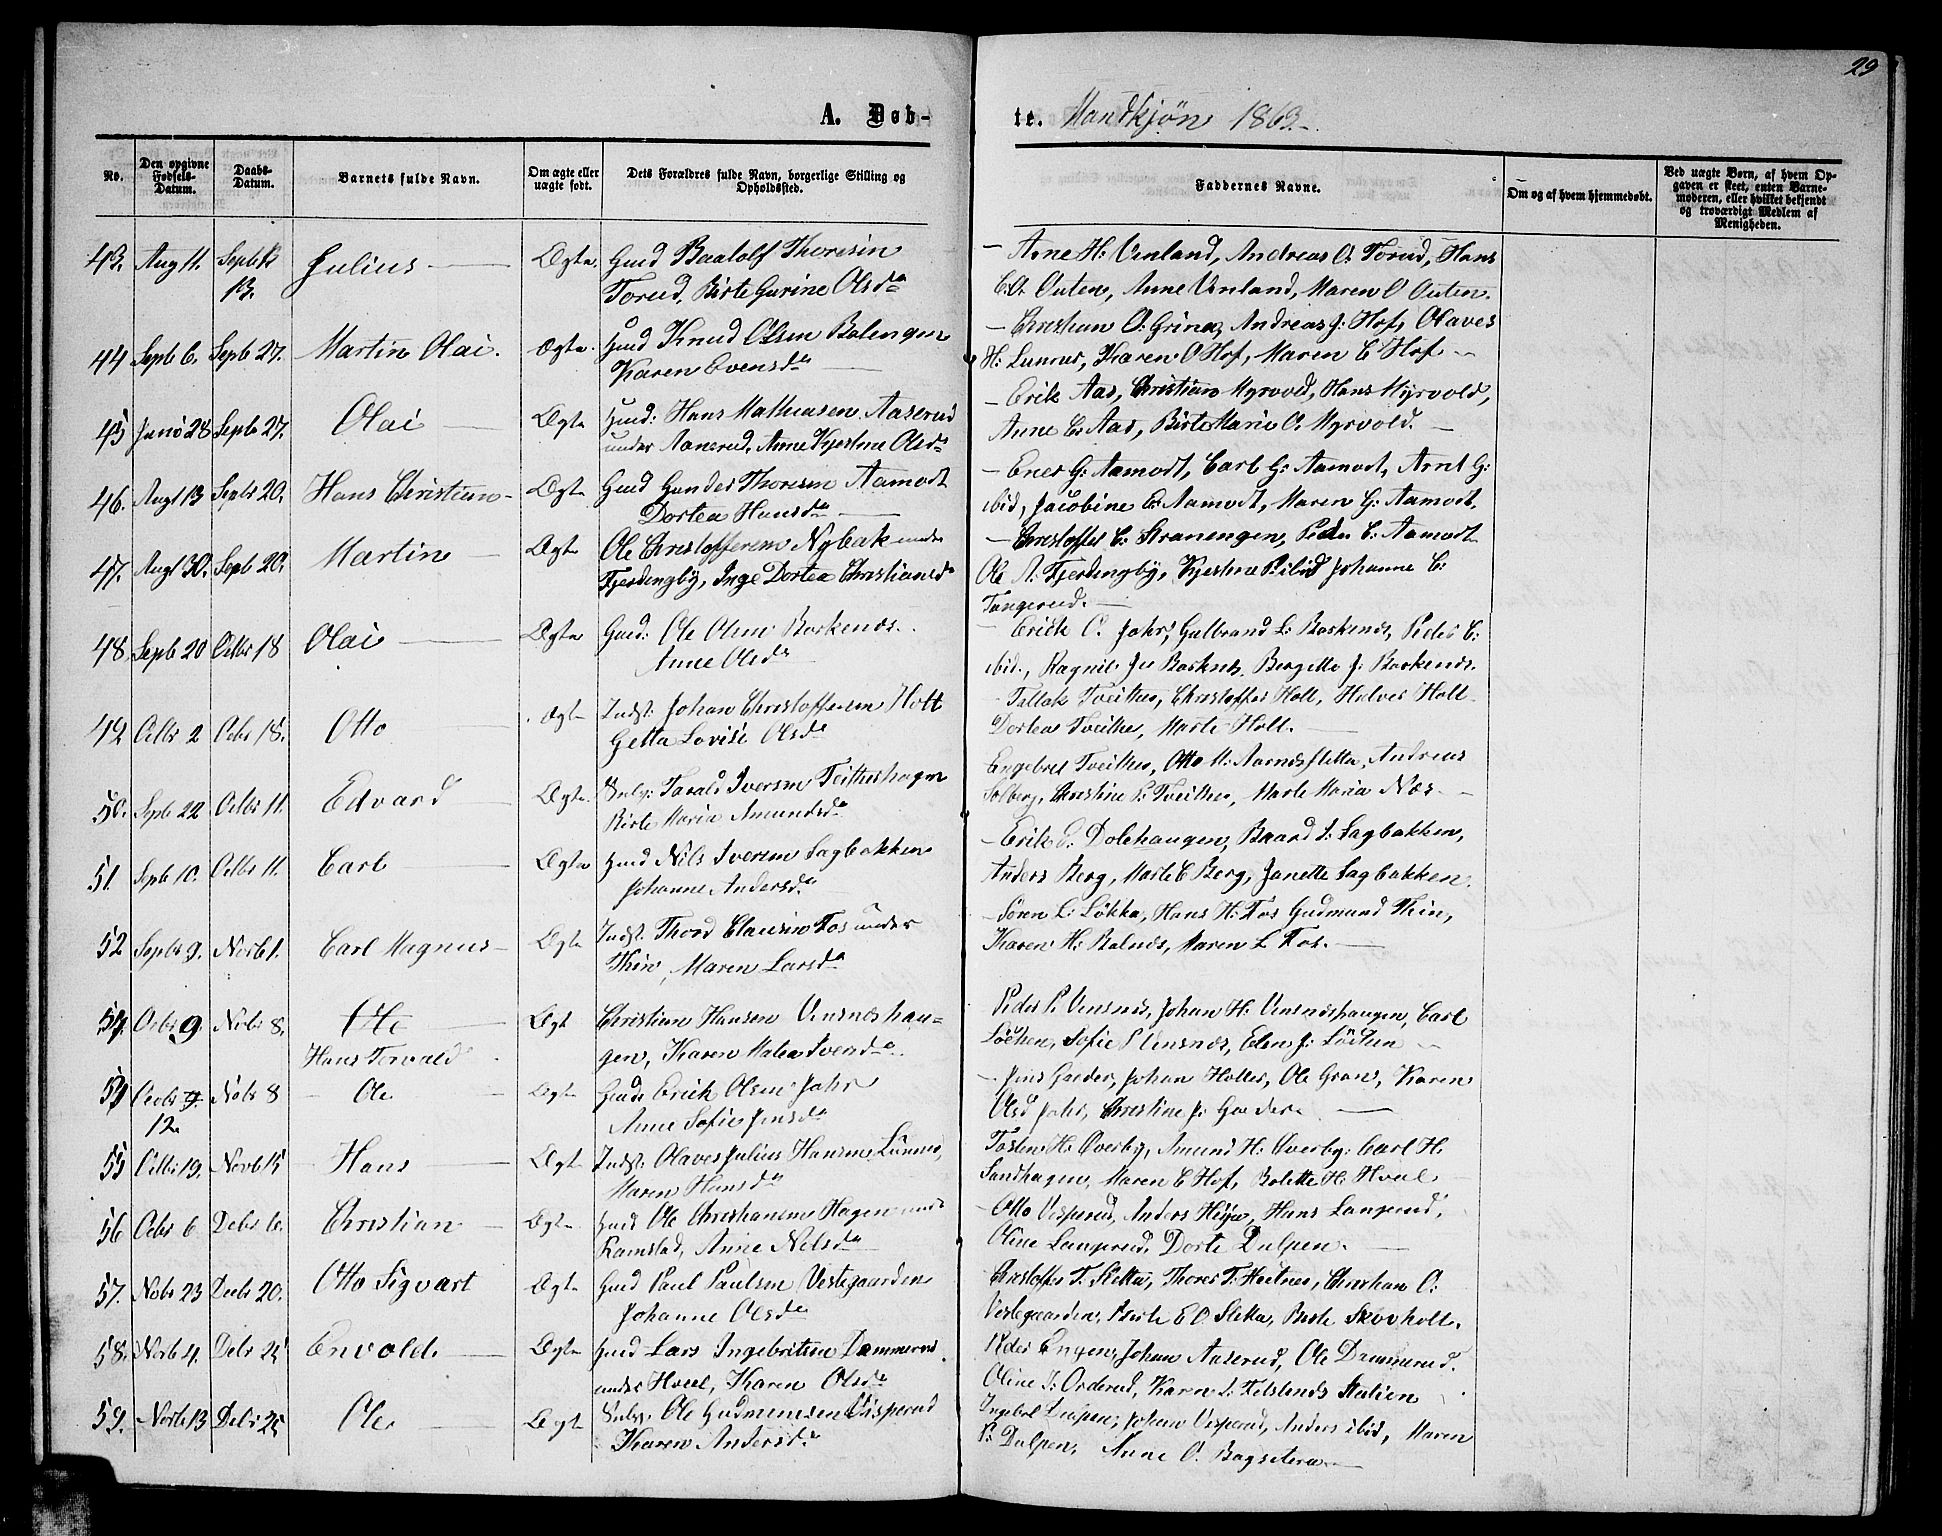 29
A. Døb-
te. Mandkjøn 1863.
No. Den opgivne Fødsels-Datum. Daabs-Datum. Barnets fulde Navn. Om ægte eller uægte født. Dets Forældres fulde Navn, borgerlige Stilling og Opholdssted.
Faddernes Navne. Om og af hvem hjemmedøbt. Ved uægte Børn, af hvem Opgaven er skeet, enten Barnemoderen, eller hvilket bekjendt og troværdigt Medlem af Menigheden.
43. Aug 11. Septb 13. Julius Ægte. Gmd Thoresen
Torud, Birte Gurine Olsdr
Arne H: Venland, Andreas O. Torud, Hans
C. O. Outen, Anne Venland, Maren O Outen.
44 Septb 6. Septb 27. Martin Olai. Ægte. Hmd Knud Olsen Bolengen
Karen Evensdr
Christian O: Grina, Andreas J: Hof, Olaves
H: Lunnas, Karen O Hof, Maren C Hof
45 Juni 28 Septb 27. Olai Ægte Hmd: Hans Mathiasen Aaserud
under Aanerud, Anne Kjestine Olsdr
Erik Aas, Christian Myrvold, Hans Myrvold,
Anne E. Aas, Birte Marie O. Myrvold.
46. Augt 13 Septb 20. Hans Christian Ægte Gmd Gunder Thoresen Aamodt
Dortea Hansdr
G: Aamodt, Carl G: Aamodt, Arnt G:
ibid, Jacobine E. Aamodt, Maren G: Aamodt.
47. Augt 30. Septb 20. Martin Ægte Ole Christoffersen Nybak under
Fjerdingby, Inge Dortea Christiansdr
Christoffer C. Stranengen, Peder C. Aamodt
Ole A. Fjerdingby, Kjestine P. ibid Johanne C.
Tangerud.
48. Septb 20 Octbr 18 Olai Ægte Gmd: Ole Olsen Baskenes.
Anne Olsdr
Erick O. Jahr, Gulbrand L: Baskenes, Peder C:
ibid., Baskenes, Bergette J: Baskenes.
49 Octbr 2 Octbr 18. Otto Ægte Indst: Johan Christoffersen Holt
Getta Lovise Olsdr
Tallak Tveithe, Christoffer Holt, Halvor Holt
Dortea Tveithe, Marte Holt.
50. Septb 22 Octbr 11. Edvard Ægte. Selvj: Tarald Iversen Teithehagen
Birte Maria Amundsdr
Engebret Tveither, Otto M. Aarnessletta, Andreas
Solberg, Christine P. Tveither, Marte Maria Næs
51. Septb 10. Octbr 11. Carl Ægte Hmd Nils Iversen Sagbakken
Johanne Andersdr
Erik E. Dolehaugen, Baard I: Sagbakken,
Anders Berg, Marte C Berg, Janette Sagbakken.
52 Septb 9. Novb 1. Carl Magnus Ægte Indst: Thord Clausen Fos under
Thin, Maren Larsdr
Søren L: Løkka, Hans H: Fos Gudmund Thin,
Karen H: Balnes, Maren L Fos.
54. Octbr 9. Nobr 8. Ole
Hans Torvald Ægt Christian Hansen Vensneshau-
gen, Karen Malea Iversdr
Peder P. Vensnes, Johan H: Vensneshaugen, Carl
Løchen, Sofie P Vensnes, Elen J: Løchen
54 Octbr 9. 12. Nobr 8 Ole Ægte Gmd. Erick Olsen Jahr
Anne Sofie Jensdr
Jens Gaeder, Johan Holter, Ole Grans, Karen
Olsd Jahr, Christine J: Gaeder
55 Octbr 19. Novb 15 Hans Ægte Indst: Olaves Julius Hansen Lunnas,
Maren Hansdr
Tosten H: Overby, Amund H: Overby: Carl H.
Sandhagen, Maren C Hof, Bolette H Hvul
56 Octbr 6 Debr 6. Christian Ægte Hmd Ole Christiansen Hagen under
Ramstad, Anne Nilsdr
Otto Vesperud, Anders Heya, Hans Langerud,
Oline Langerud, Dorte Dulpen.
57. Nobr 23 Decbr 20. Otto Sigvart Ægte Gmd Paul Paulsen Vestgaarden
Johanne Olsdr
Christoffer T. Sletta, Thorer T. Heitnes, Christian O:
Vestegaarden, Berte E O Sletta, Berte Skovholt.
58. Novb 4. Debr 25 Envold Ægte Hmd Lars Ingebretsen Dammerud
under Hvul, Karen Olsdr
Peder Engen, Johan Aaserud, Ole Dammerud.
Oline I: Orderud, Karen I. Fetslunds Station
59. Novb 13 Debr 25 Ole Ægt Selvj. Ole Gudmunsen Visperud
Karen Andersdr
Ingebret Dulpen, Johan Vesperud, Anders ibid, Maren
P: Dulpen, Anne O. Bagsetera